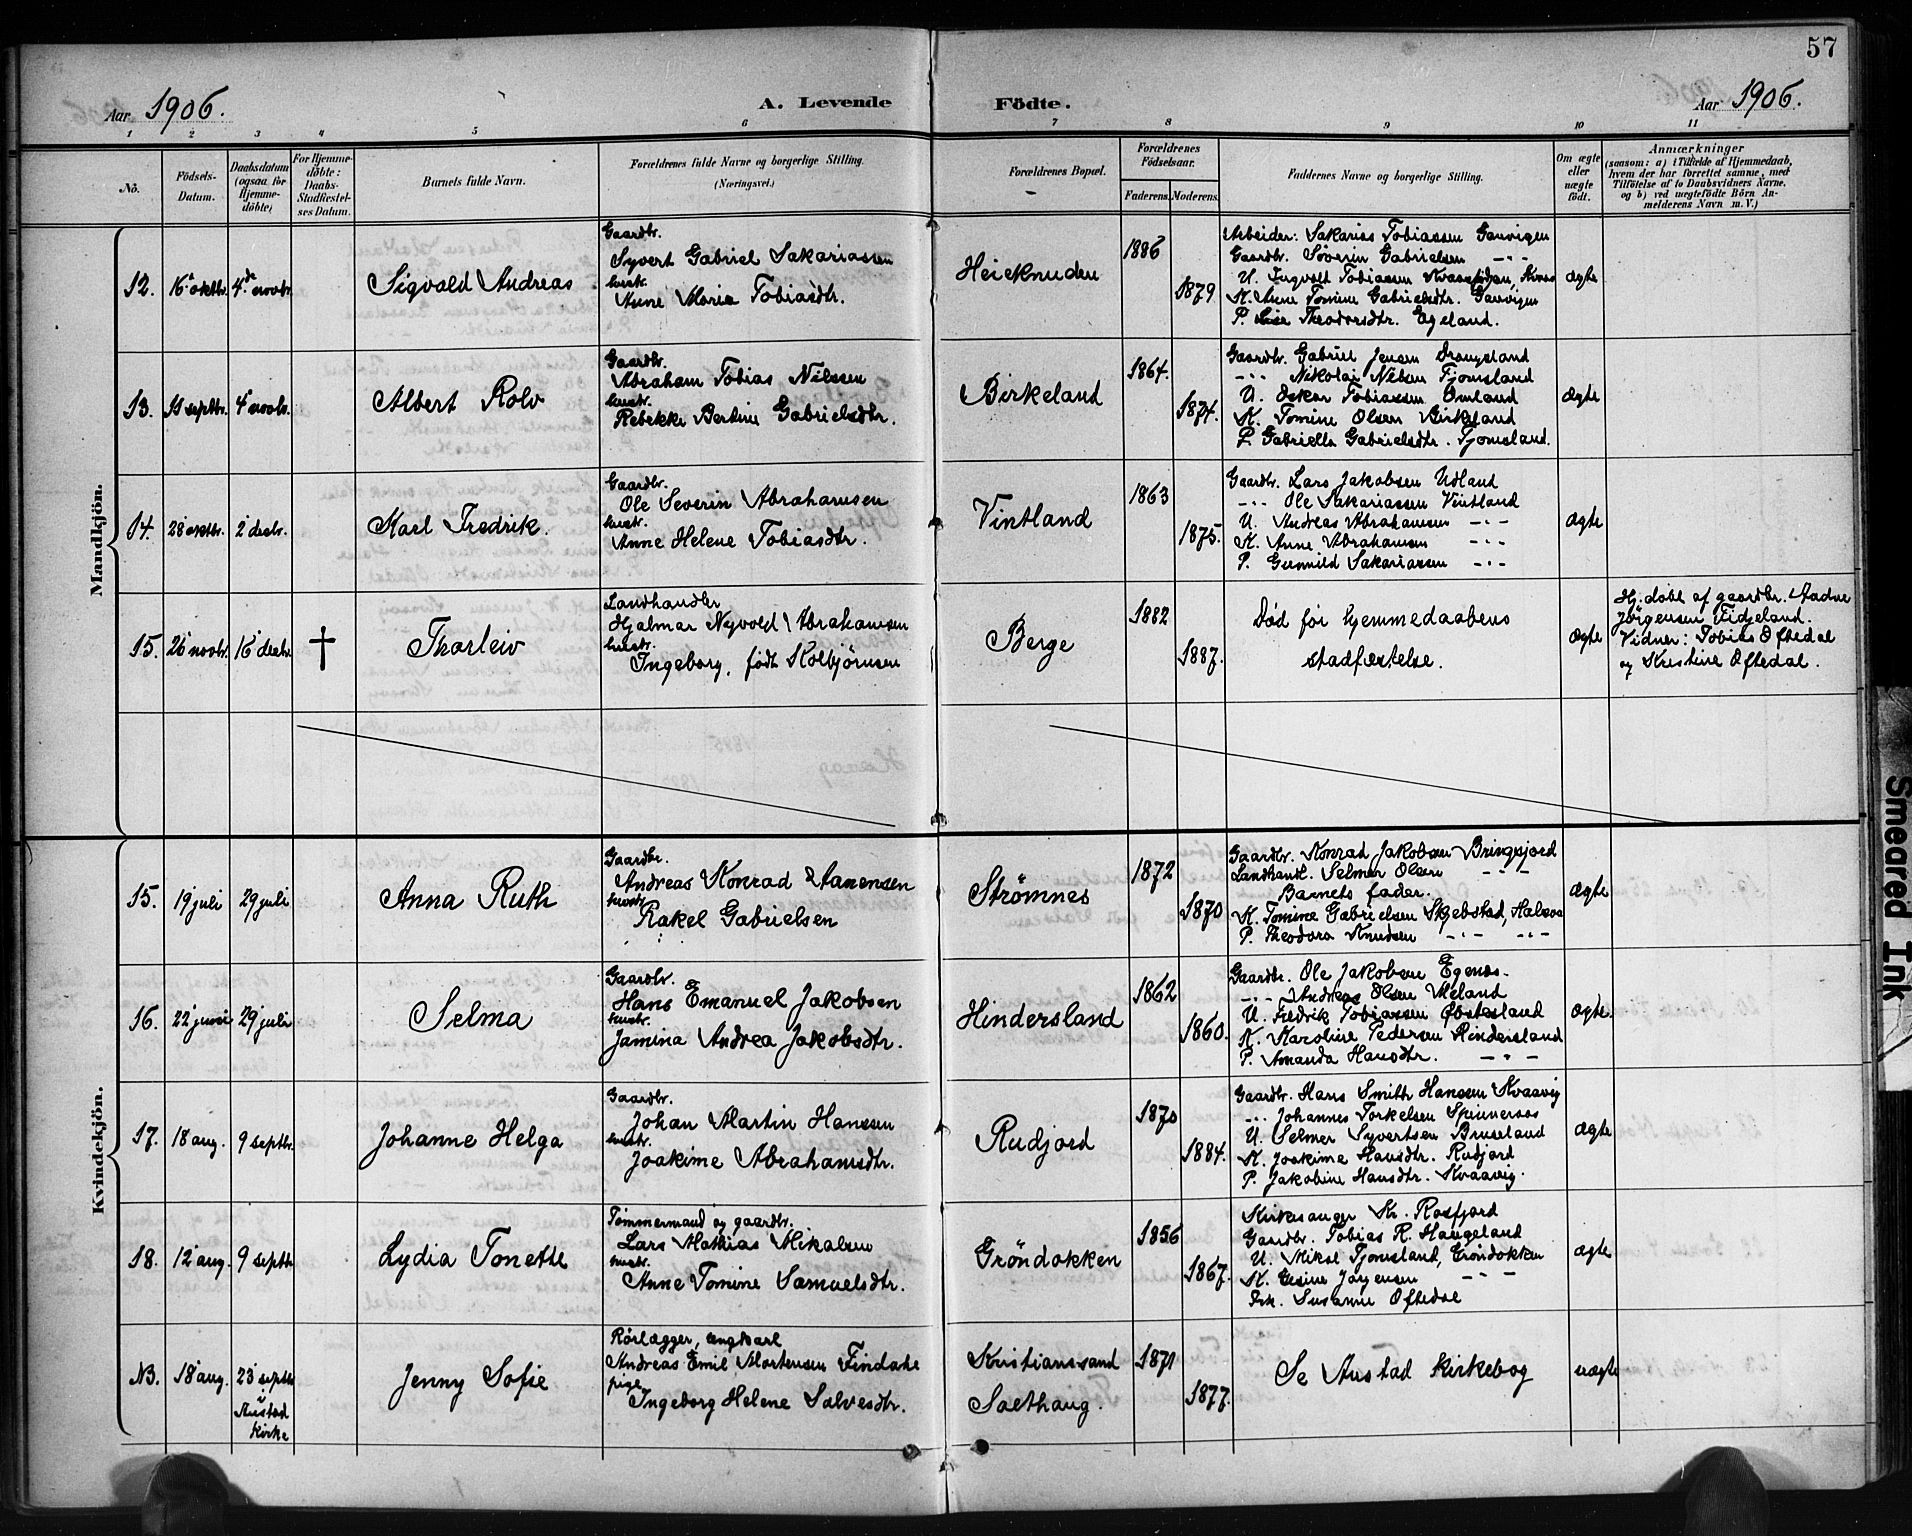 57
Aar 1906. A. Levende Födte. Aar 1906.
1 2 3 4 5 6 7 8 9 10 11
No. Födsels-Datum. Daabsdatum (ogsaa for Hjemmedöbte) For Hjemmedöbte: Daabs-Stadfæstelses Datum. Barnets fulde Navn. Forældrenes fulde Navne og borgerlige Stilling. (Næringsvei.) Forældrenes Bopæl. Forældrenes Födselsaar. Faderens. Moderens. Faddernes Navne og borgerlige Stilling. Om ægte eller uægte födt. Anmærkninger (saasom: a) i Tilfælde af Hjemmedaab, hvem der har forrettet samme, med Tilföielse af to Daabsvidners Navne, og b) ved uægtefödte Börn Anmelderens Navn m. V.)
Mandkjön.
12. 16 oktbr. 4de novbr. Sigvald Andreas
Gaardbr.
Syvert Gabriel Sakariassen
hustr.
Anne Marie Tobiasdtr.
Heieknuden 1886 1879
Arbeider: Sakarias Tobiassen Gauvigen
Gaardbr. Severin Gabrielsen -"-
U. Ingvald Tobiassen
K. Anne Tomine Gabrielsdtr. Gauvigen
P. Theodorsdtr. Egeland.
ægte
13. 11 septbr. 4 novbr. Albert Rolv
Gaardbr.
Abraham Tobias Nilssen
hustr.
Rebekke Bertine Gabrielsdtr.
Birkeland 1864. 1874.
Gaardbr. Gabriel Jensen Drangsland
-"- Nikolai Nilsen Fjomsland
U. Oskar Tobiassen Omland
K. Tomine Olsen Birkeland
P. Gabriella Gabrielsdtr. Tjomsland.
ægte
14. 28 oktbr. 2 decbr. Karl Fredrik.
Gaardbr.
Ole Severin Abrahamsen
hustr.
Anne Helene Tobiasdtr.
Vintland 1863 1875.
Gaardbr. Lars Jakobsen Udland
-"- Ole Sakariassen Vintland
U. Andreas Abrahamsen -"-
K. Anne Abrahamsen -"-
P. Gunnild Sakariassen -"-
ægte
15. 26 novbr. 16 decbr. † Thorleiv
Landhandler
Hjalmar Nyvold Abrahamsen
hustr.
Ingeborg, født Kolbjørnsen
Berge 1882 1887.
Død før hjemmedaabens
stadfæstelse.
ægte
Hj. döbt af gaardbr. Aadne
Jörgensen Fidjeland.
Vidner: Tobias Oftedal
og Kristine Oftedal.
Kvindekjön.
15. 19 juli 29 juli Anna Ruth
Gaardbr.
Andreas Konrad Aanensen
hustr.
Rakel Gabrielsen
Strømnes 1872 1870
Gaardbr. Konrad Jakobsen Bringsjord
Landhandl. Selmer Olsen -"-
Barnets fader.
K. Tomine Gabrielsen Skjebstad, Halsaa
P. Theodora Knudsen -"- -"-
ægte
16. 22 juni 29 juli Selma
Gaardbr.
Hans Emanuel Jakobsen
hustr.
Jamina Andrea Jakobsdtr.
Hindersland 1862 1860.
Gaardbr. Ole Jakobsen Egenes.
-"- Andreas Olsen Meland
U. Fredrik Tobiassen
K. Karoline Pedersen Hindersland
P. Amanda Hansdtr. -"-
ægte.
17. 18 aug. 9 septbr. Johanne Helga
Gaardbr.
Johan Martin Hanssen
hustr.
Joakime Abrahamsdtr.
Rudjord 1870 1884.
Gaardbr. Hans Smith Hanssen Kvaavig
-"- Johannes Torkelsen Spinneraas
U. Selmer Syvertsen Bruseland
K. Joakime Hansdtr. Rudjord
P. Jakobine Hansdtr. Kvaavig.
ægte
18. 12 aug. 9 septbr. Lydia Tonette
Tømmermand og gaardbr.
Lars Mathias Mikalsen
hustr.
Anne Tomine Samuelsdtr.
Gröndokken 1856 1867.
Kirkesanger Kr. Rosfjord
Gaardbr. Tobias R. Haugeland
U. Mikal Tjomsland, Gröndokken
K. Jørgensen -"-
Frk. Susanne Oftedal
ægte
NB. 18 aug. 23 septbr.
i
Austad
kirke
Jenny Sofie
Rørlægger, ungkarl
Andreas Emil Mortensen Findahe
pige
Ingeborg Helene Salvesdtr.
Kristianssand
Salthaug.
1871 1877.
Se Austad kirkebog
uægte
Smeared Ink